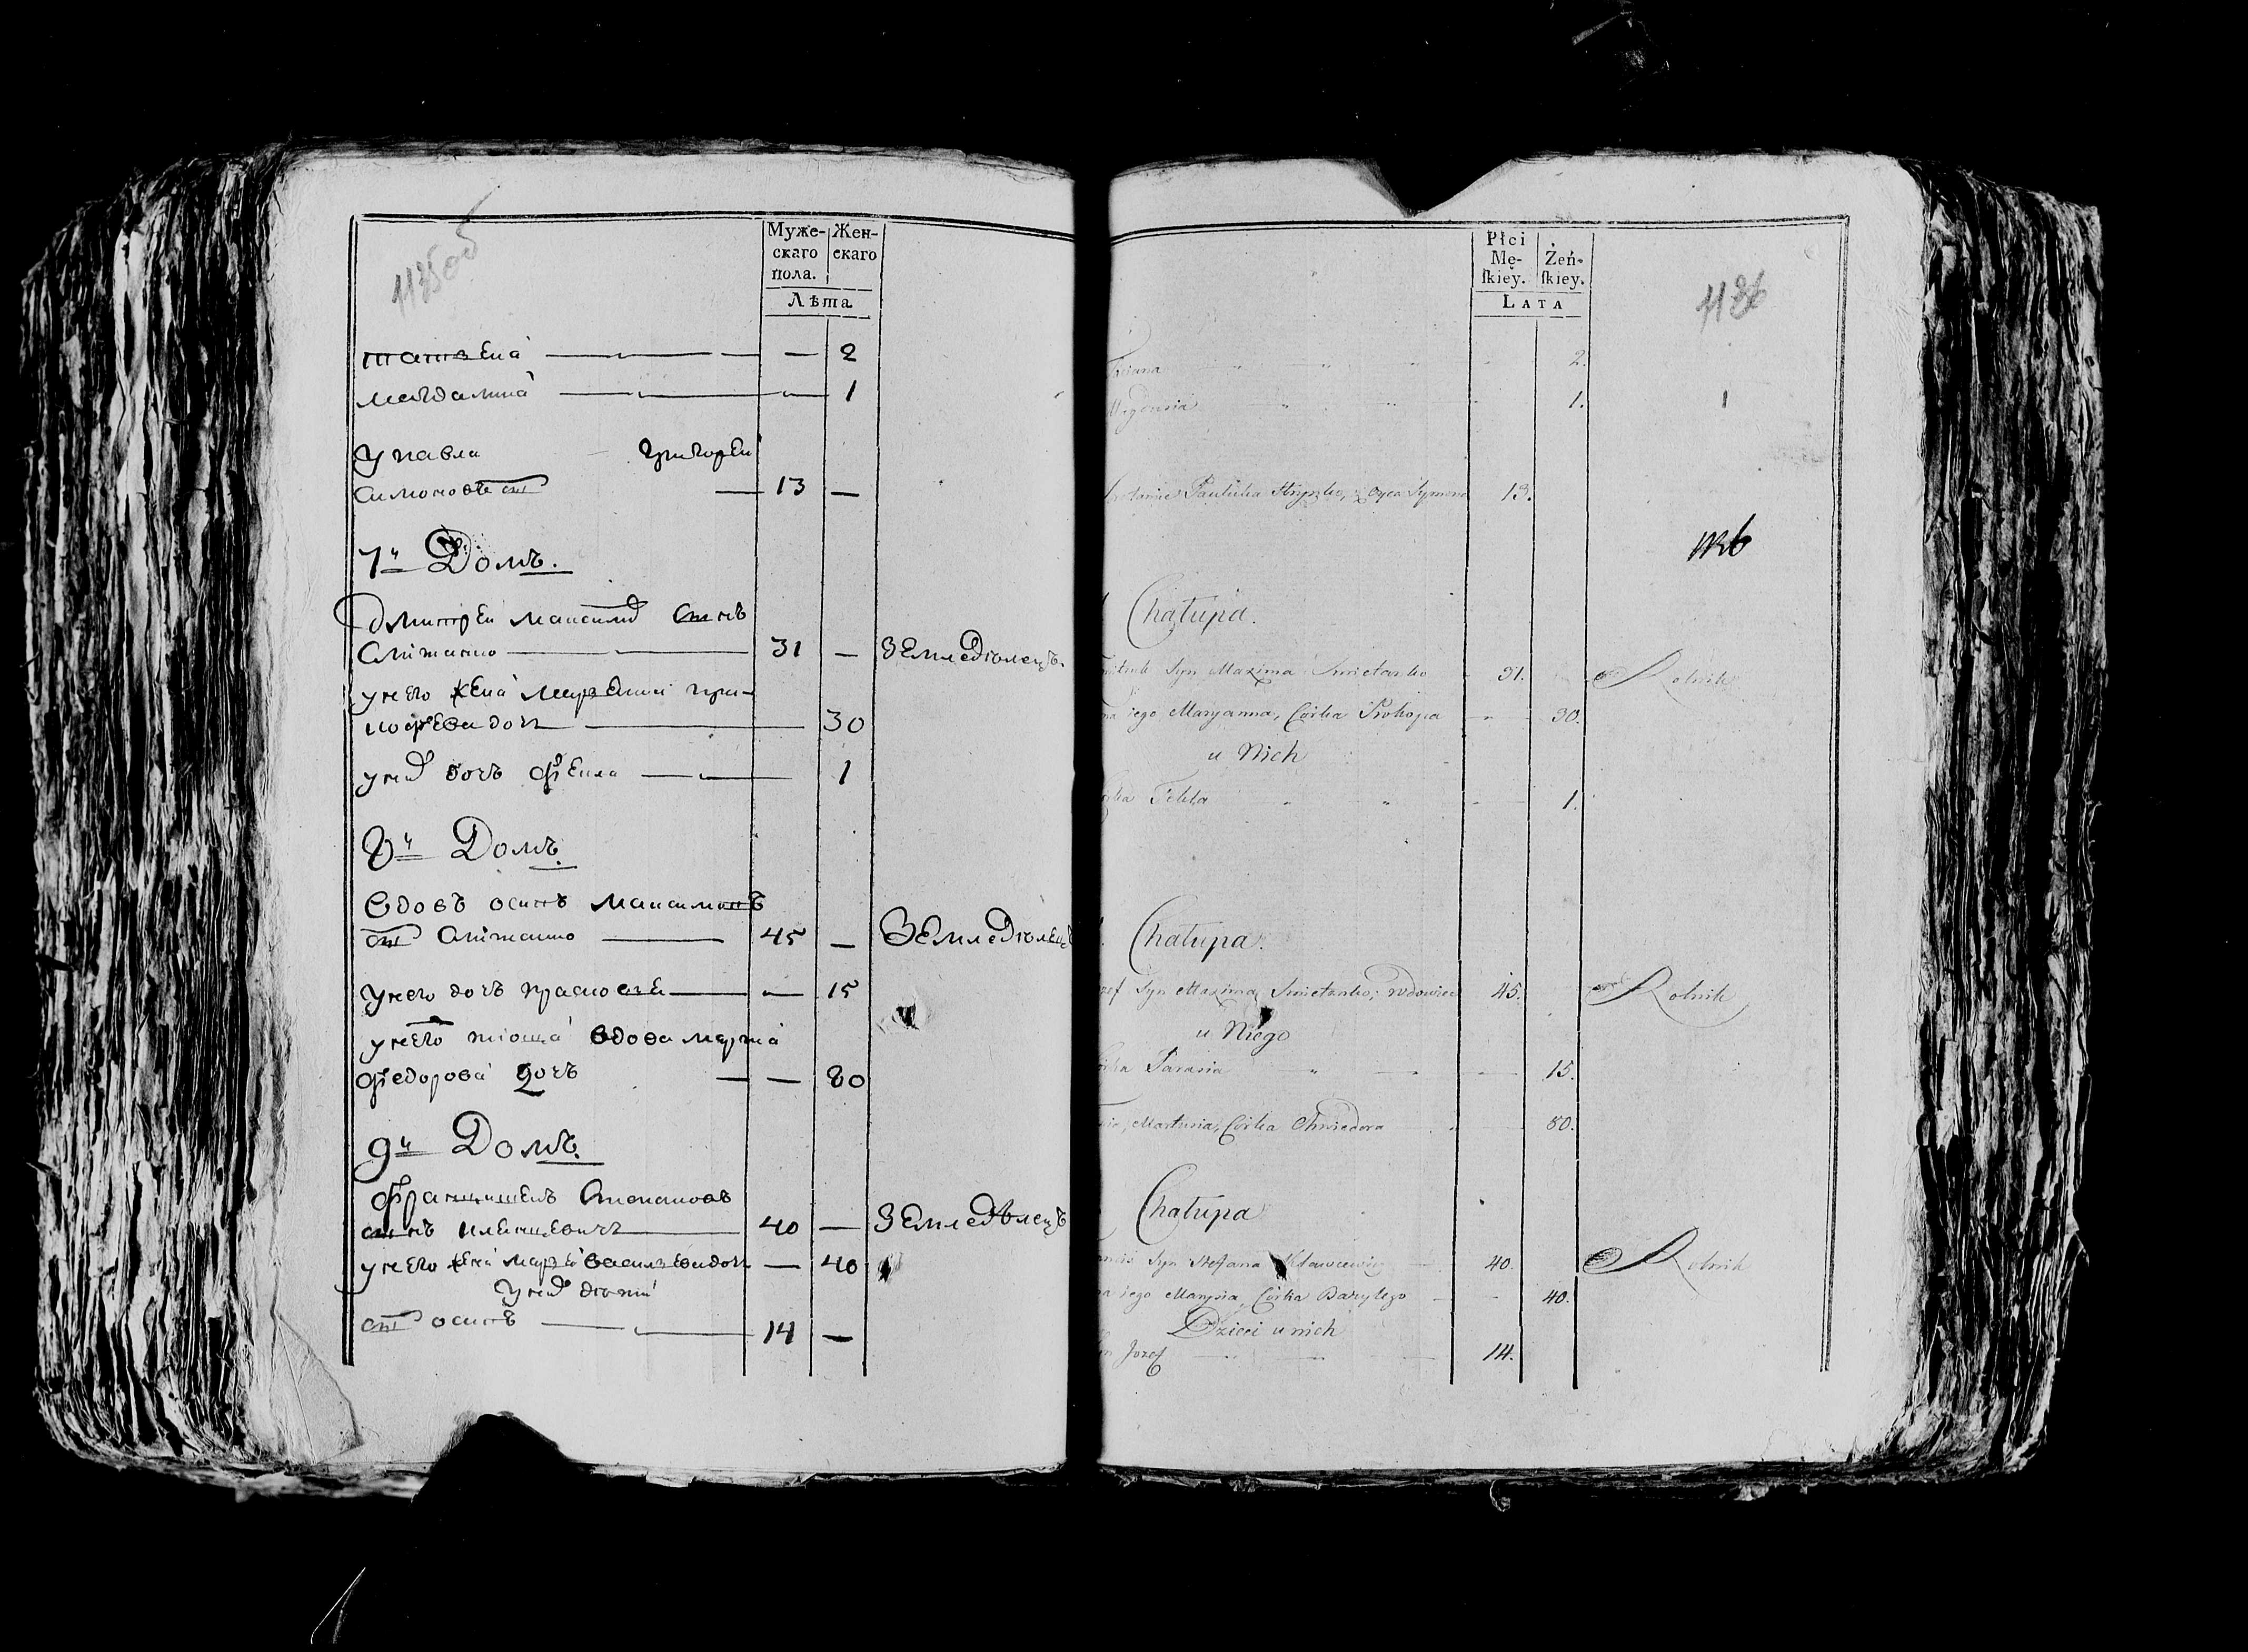 1135об
Муже-
скаго
пола.
Жен-
скаго
Лѣта
татьена — — 2
магдалина — — 1
у павла григорей
симоновъ сн — 13 —
7й Домъ.
дмитрей максимо снъ
смѣтанко — 31 — Земледѣлецъ.
у него жена марьенна про-
кофева доч — 30
у них дочь фекла — 1
8й Домъ.
вдовъ осипъ максимовъ
сн смѣтанко — 45 — Земледѣлец
у него дочь прасковея — — 15
у него тіоща вдова марта
федорова дочь — — 80
9й Домъ.
францишекъ степановъ
снъ — 40 — Земледѣлецъ
у него жена марья васильева доч — 40
у них дѣти
сн осипъ — 14 —
Płci
Mę-
skiey.
Żeń-
skiey.
LATA
1136
Taciana 2.
1.
Pawluka Hryszko, z Oyca Symona 13.
1136
Chałupa.
Syn Maxima Smietanko 31. Rolnik
iego Maryanna, Córka Prokopa 30.
u Nich
Tekla 1.
Chałupa.
Syn Maxima Smietanko, wdowiec 45. Rolnik
u Niego
Parasia 15.
Martusia, Córka Chwiedora 80.
Chałupa
Syn Stefana 40. Rolnik
iego Marysia, Córka Bazylego 40.
Dzieci u nich
Jozef 14.